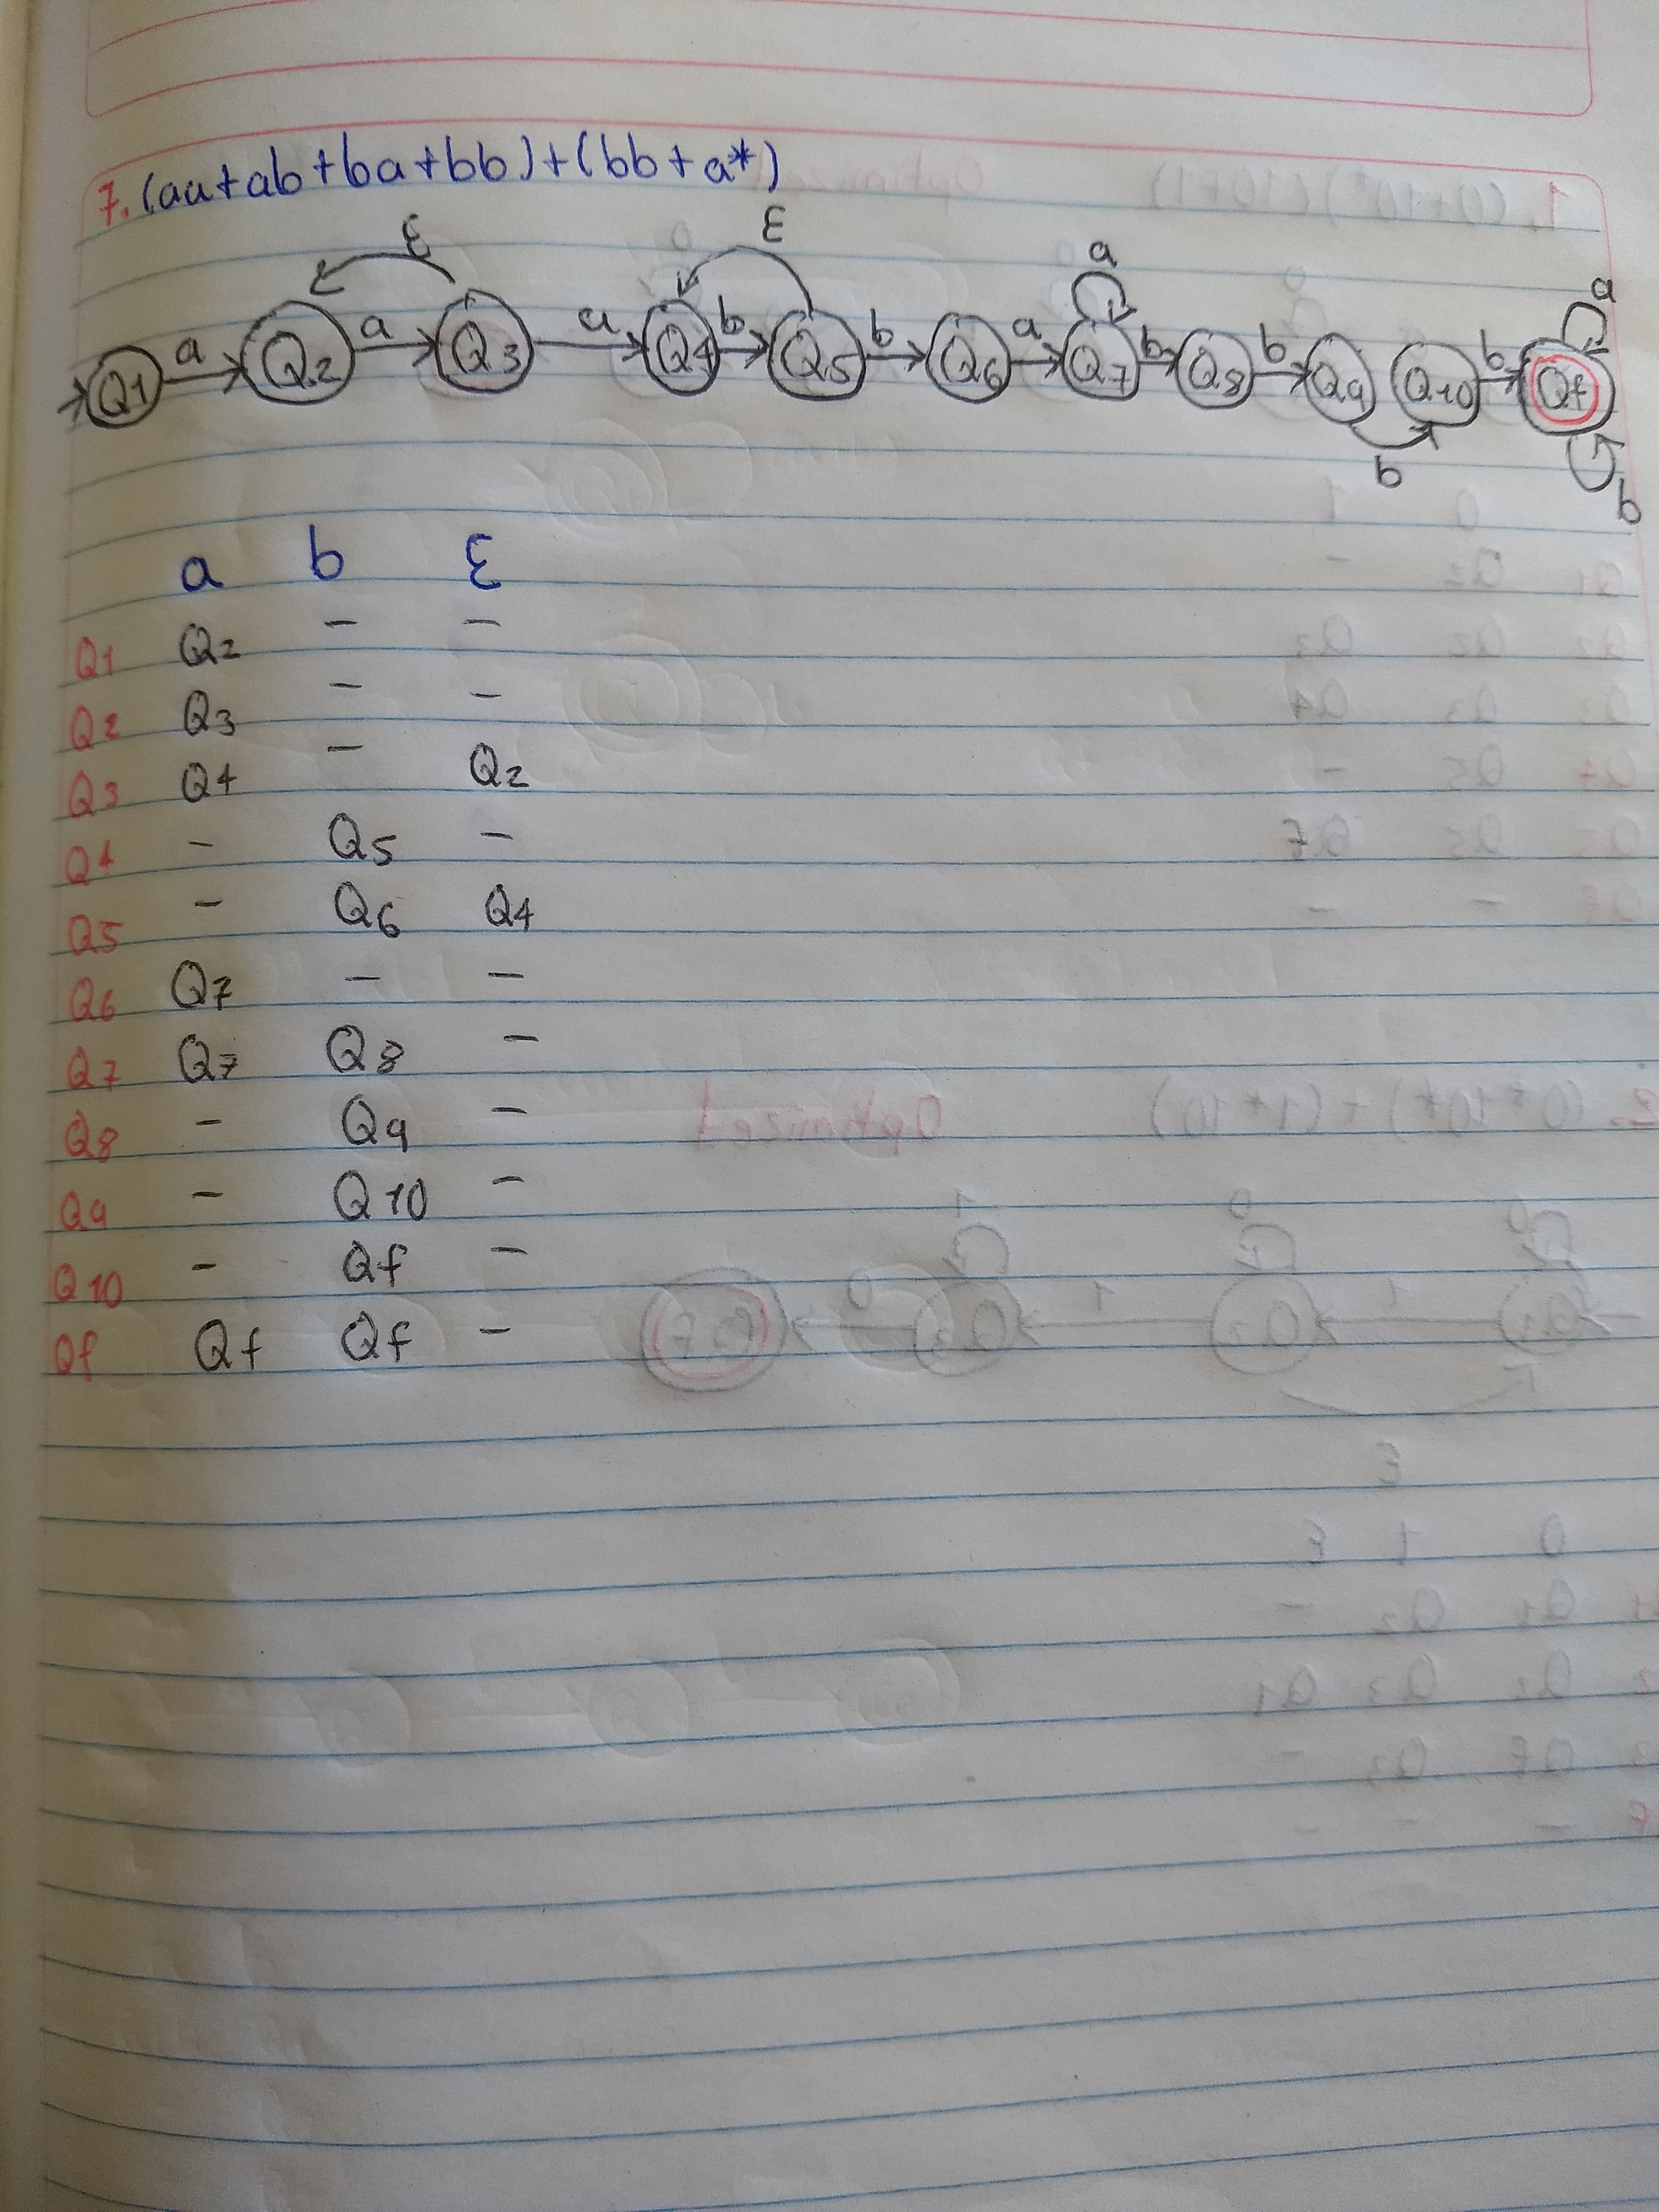 7. (aa+ab+ba+bb)+(bb+a*)
ε ε a a
Q1 a Q2 a Q3 a Q4 b Q5 b Q6 a Q7 b Q8 b Q9 Q10 b Qf
b b
a b ε
Q1 Q2 - -
Q2 Q3 - -
Q3 Q4 - Q2
Q4 - Q5 -
Q5 - Q6 Q4
Q6 Q7 - -
Q7 Q7 Q8 -
Q8 - Q9 -
Q9 - Q10 -
Q10 - Qf -
Qf Qf Qf -